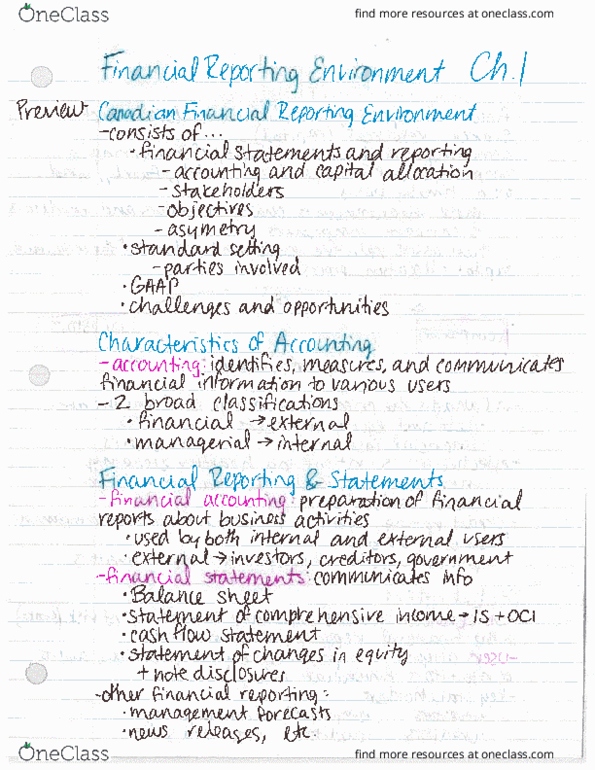 OneClass
find more resources at oneclass.com
Financial Reporting Environment Ch.1
Preview Canadian Financial Reporting Environment
-consists of...
•financial statements and reporting
-accounting and capital allocation
-stakeholders
-objectives
-asymetry
•standard setting
-parties involved
•GAAP
•challenges and opportunities
Characteristics of Accounting
-accounting: identifies, measures, and communicates
financial information to various users
-2 broad classifications
•financial →external
•managerial →internal
Financial Reporting & Statements
-financial accounting: preparation of financial
reports about business activities
•used by both internal and external users
•external →investors, creditors, government
-financial statements: communicates info
•Balance sheet
•statement of comprehensive income → IS + OCI
•cash flow statement
•statement of changes in equity
+ note disclosures
-other financial reporting:
•management forecasts
•news releases, etc.
OneClass
find more resources at oneclass.com